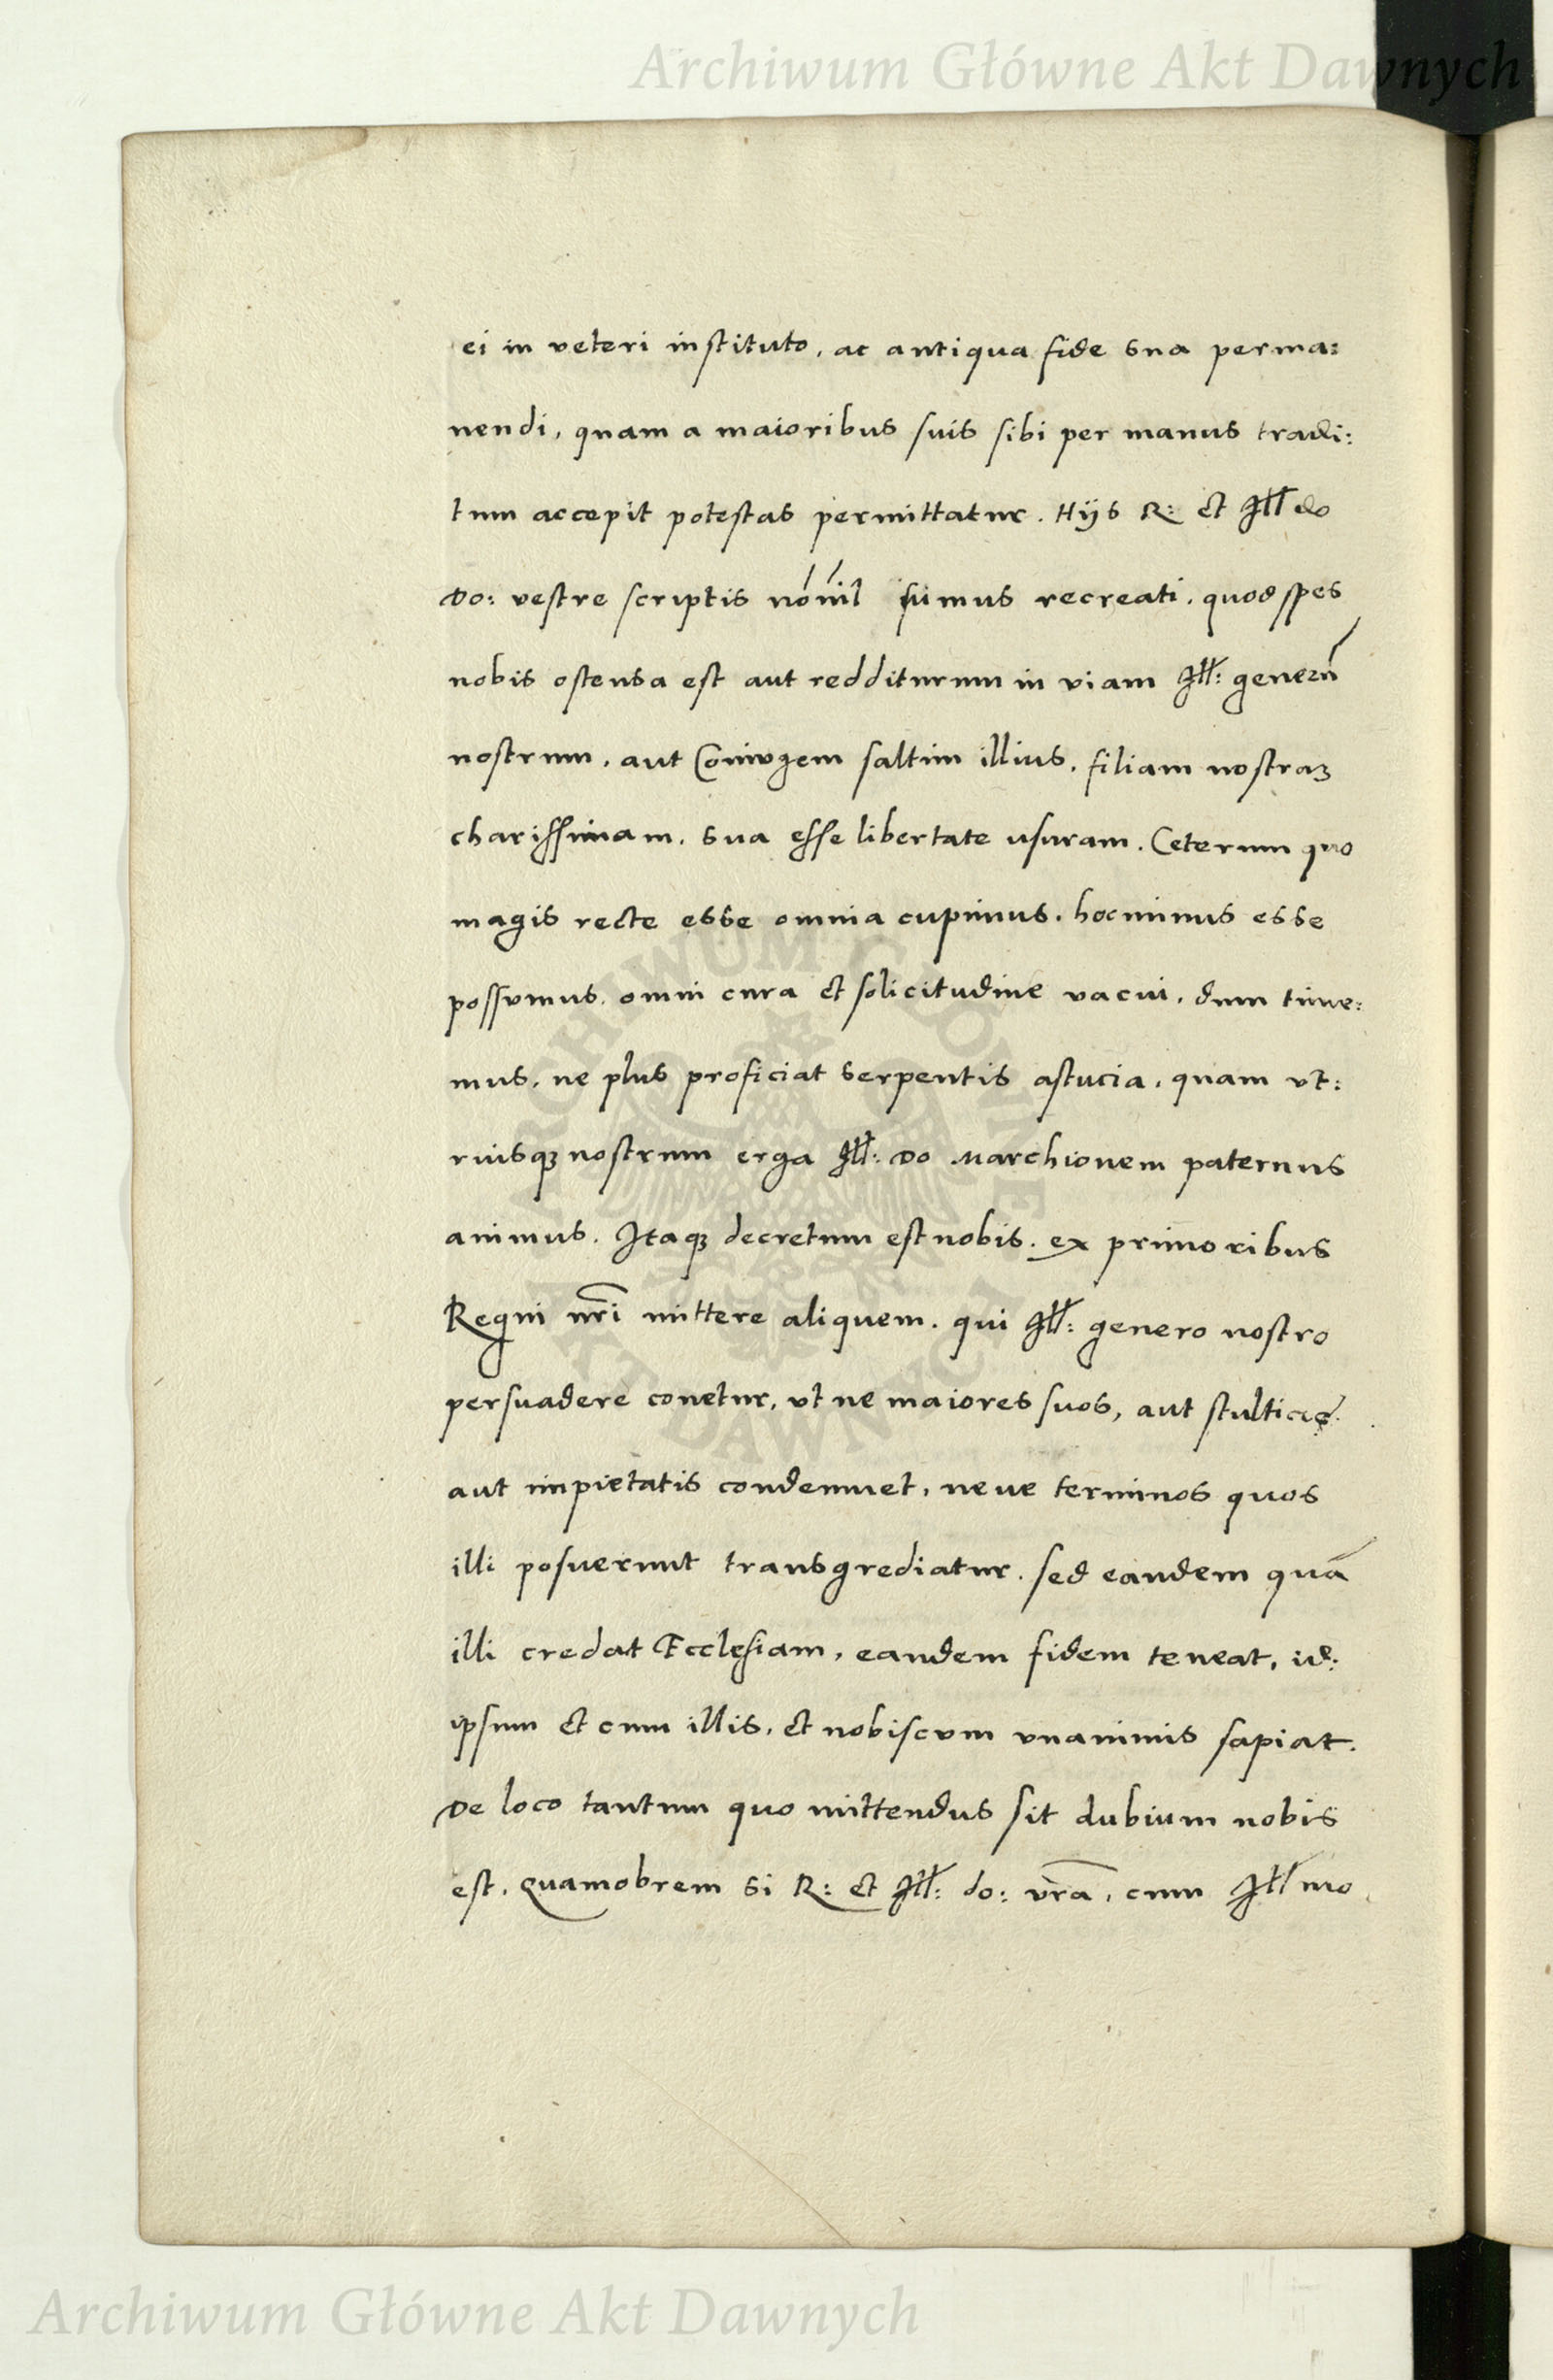 Archiwum Główne Akt Dawnych
ei in veteri instituto, ac antiqua fide sua perma:
nendi, quam a maioribus suis sibi per manus tradi:
tum accepit potestas permittatur. Hijs R: et Ill do
Do: vestre scriptis nónil sumus recreati, quod spes
nobis ostensa est aut redditurum in viam Ill: generū
nostrum, aut Coniugem saltim illius, filiam nostraʒ
charissimam, sua esse libertate usuram. Ceterum quo
magis recte esse omnia cupimus, hoc minus esse
possumus, omni cura et solicitudine vacui, dum time:
mus, ne plus proficiat serpentis astucia, quam vt:
riusqʒ nostrum erga Ill: Do Marchionem paternus
animus. Itaqʒ decretum est nobis, ex primoribus
Regni nr̄i mittere aliquem, qui Ill: genero nostro
persuadere conetur, vt ne maiores suos, aut stulticię
aut impietatis condemnet, neue terminos quos
illi posuerunt transgrediatur, sed eandem quā
illi credat Ecclesiam, eandem fidem teneat, id:
ipsum et cum illis, et nobiscum vnanimis sapiat.
De loco tantum quo mittendus sit dubium nobis
est, quamobrem si R: et Ill: do: vr̄a, cum Ill mo
ARCHIWUM GŁÓWNE
AKT DAWNYCH
Archiwum Główne Akt Dawnych